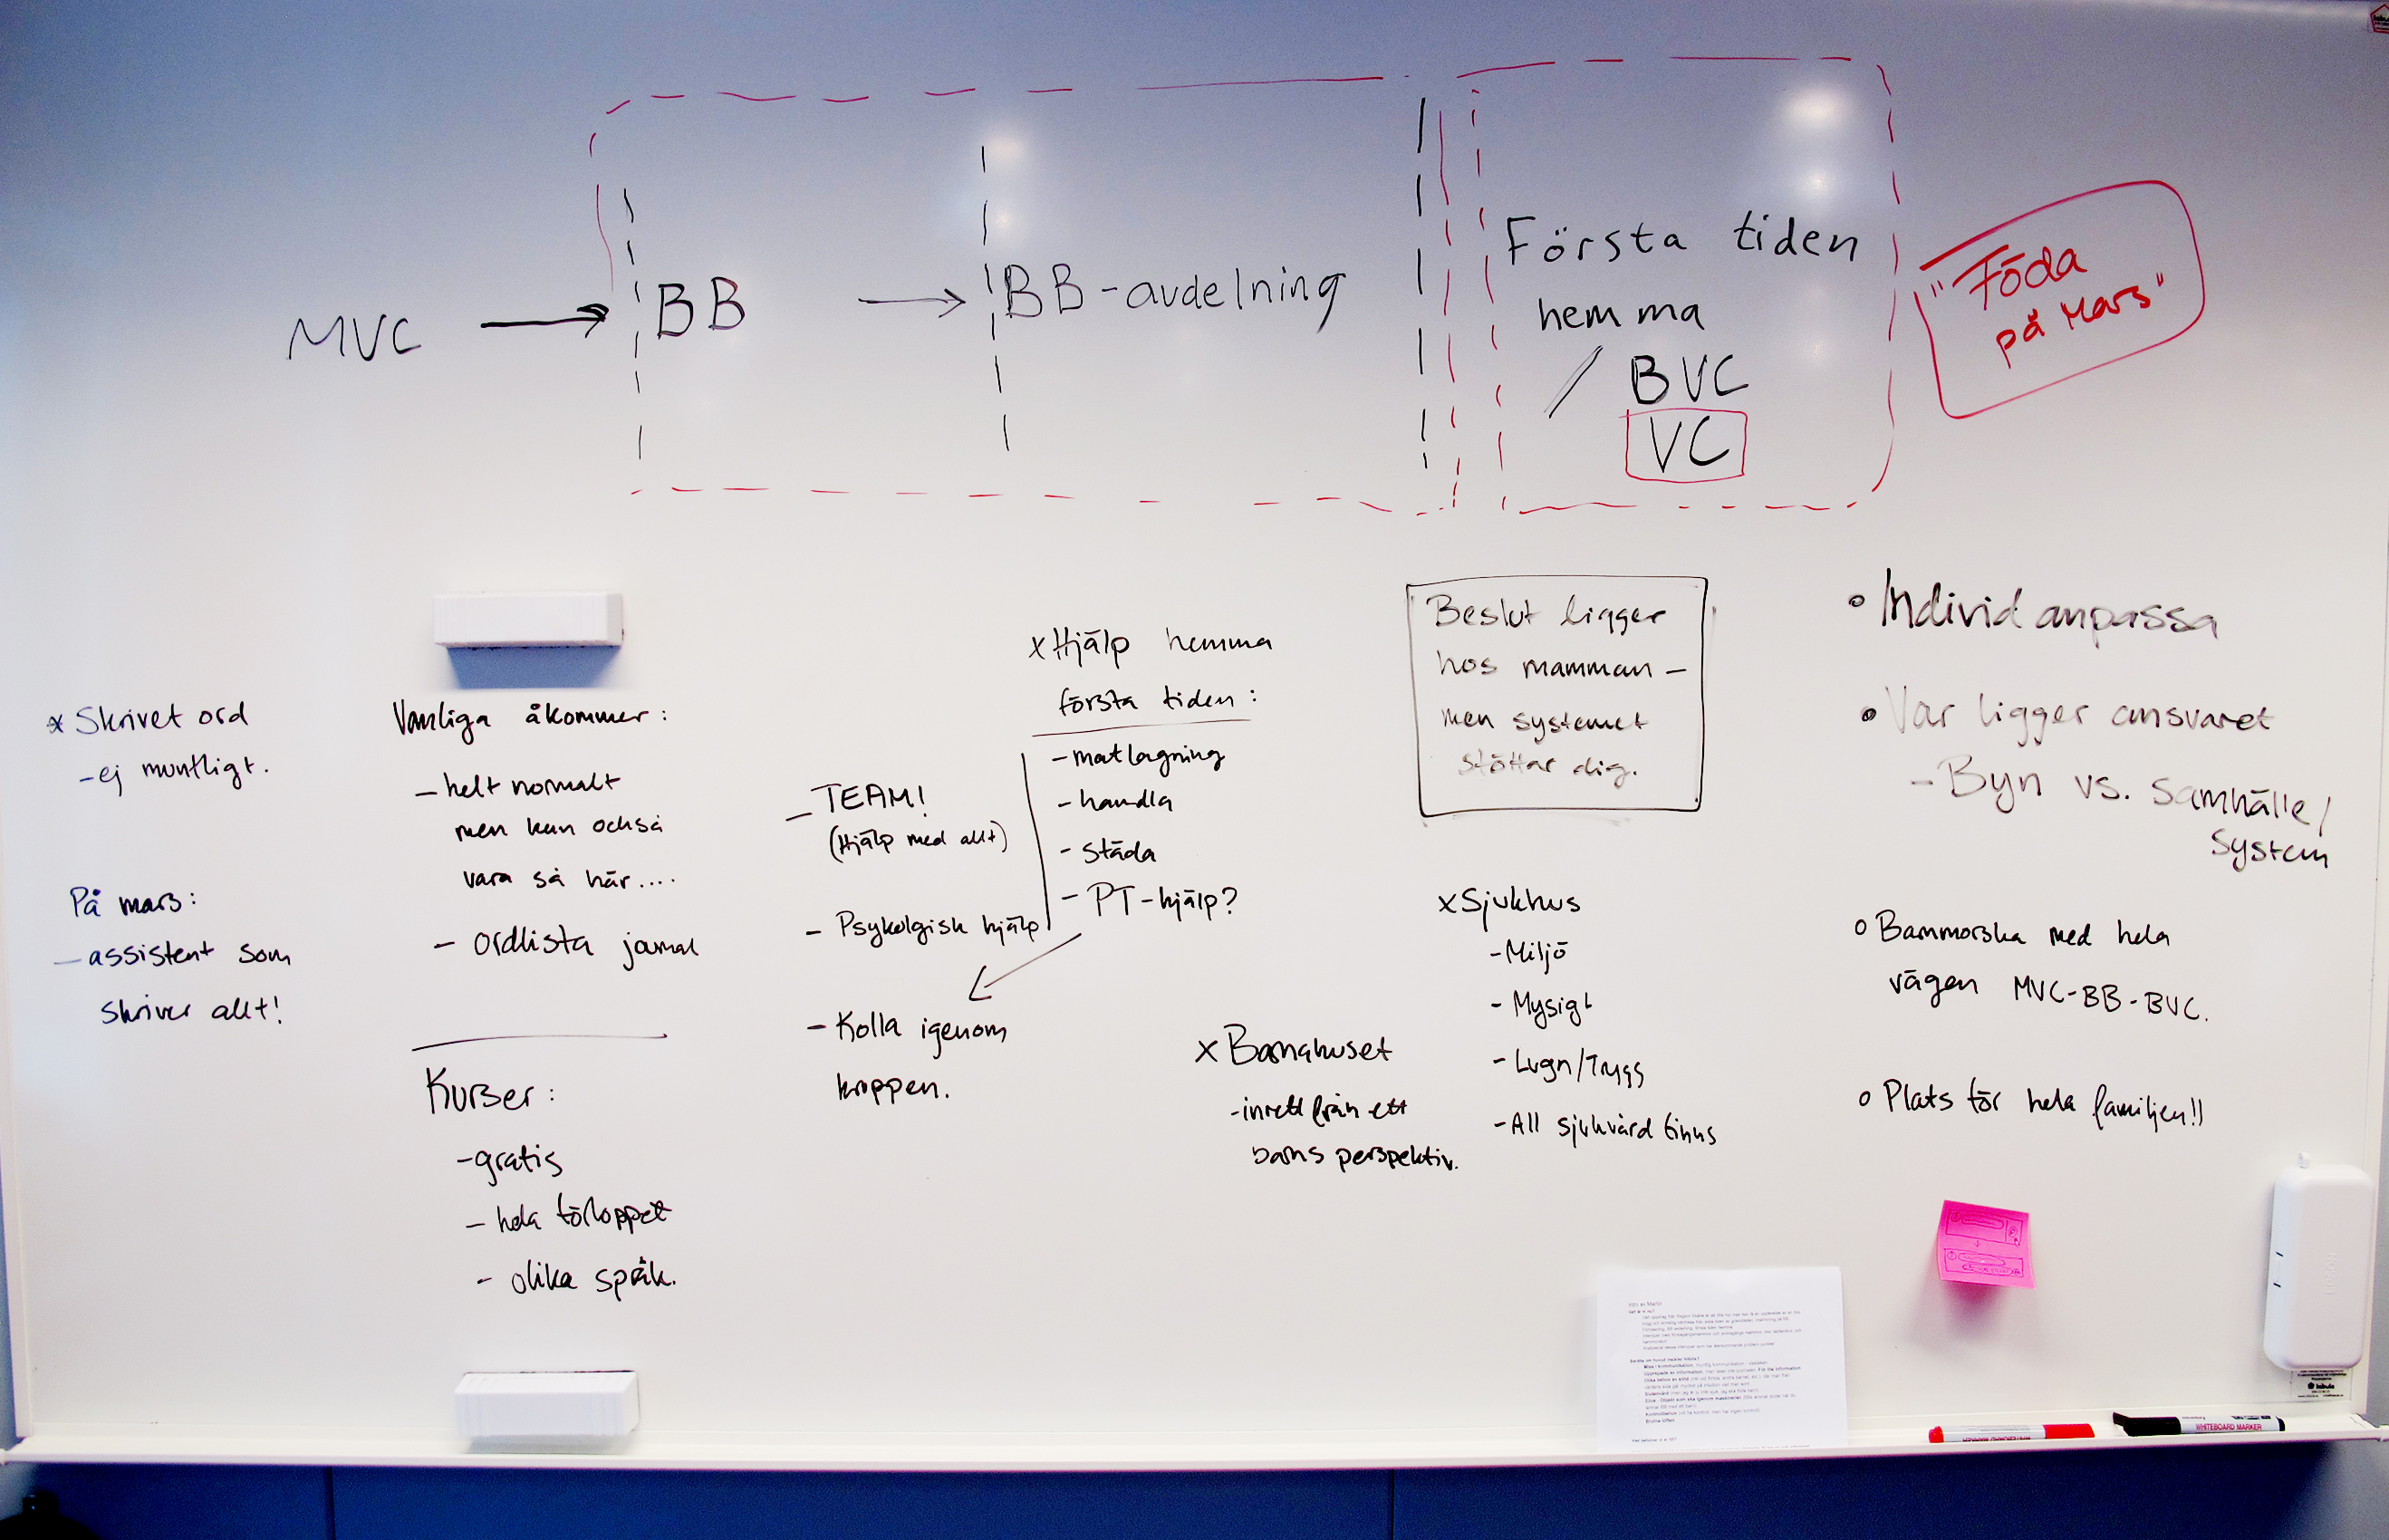 MVC → BB → BB-avdelning
Första tiden
hemma
/ BVC
VC
"Föda
på Mars"
x Skrivet ord
- ej muntligt.
På mars:
- assistent som
skriver allt!
Vanliga åkommer:
- helt normalt
men kan också
vara så här....
- ordlista
Kurser:
- gratis
- hela förloppet
- olika språk.
- TEAM!
(Hjälp med allt)
- Psykolgisk hjälp
- Kolla igenom
kroppen.
x Hjälp hemma
första tiden:
- matlagning
- handla
- städa
- PT-hjälp?
x Barnahuset
- inrett från ett
barns perspektiv.
Beslut ligger
hos mamman -
men systemet
stöttar dig.
x Sjukhus
- Miljö
- Mysigt
- Lugn/Trygg
- All sjukvård finns
• Individanpassa
• Var ligger ansvaret
- Byn vs. samhälle/
system
o Barnmorska med hela
vägen MVC-BB-BVC.
o Plats för hela familjen!!
WHITEBOARD MARKER